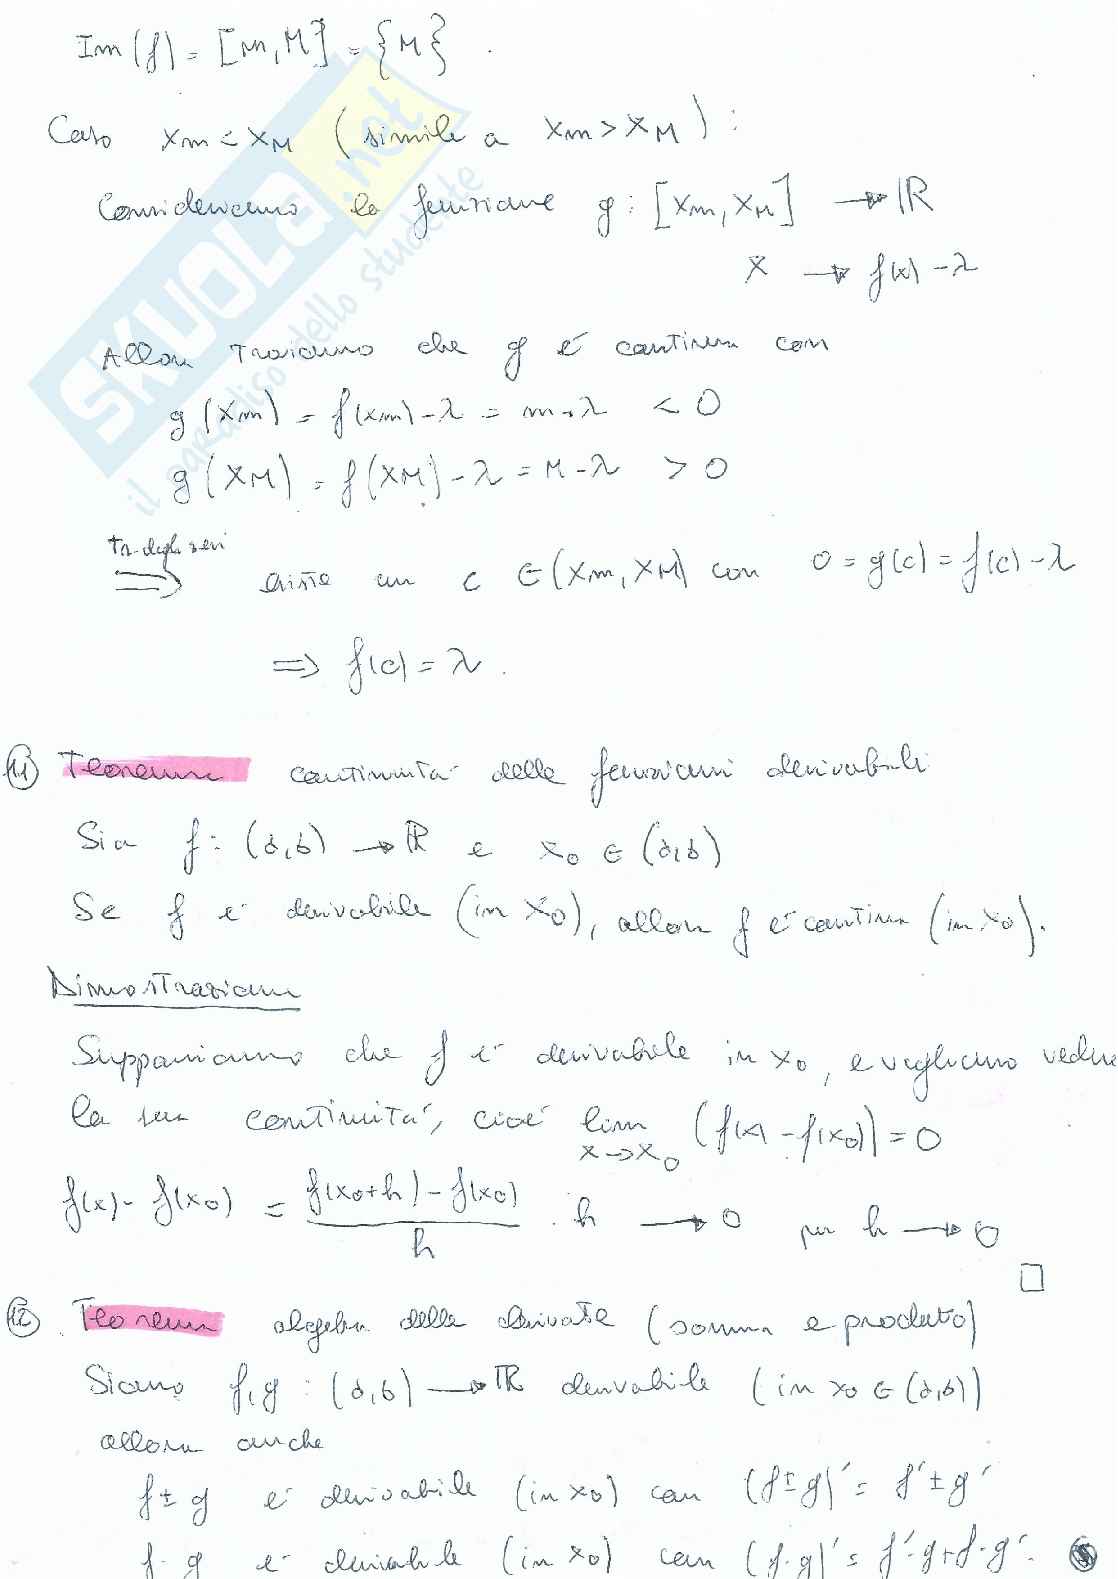 Im(f) = [m, M] = {M}.
Caso xm < xM (simile a xm > xM):
Consideriamo la funzione g: [xm, xM] → ℝ
x → f(x) - λ
Allora troviamo che g é continua con
g(xm) = f(xm) - λ = m - λ < 0
g(xM) = f(xM) - λ = M - λ > 0
te. degli zeri
⇒ esiste un c ∈ (xm, xM) con 0 = g(c) = f(c) - λ
⇒ f(c) = λ.
11 Teorema continuitá delle funzioni derivabili
Sia f: (a,b) → ℝ e x0 ∈ (a,b)
Se f é derivabile (in x0), allora f é continua (in x0).
Dimostrazione
Supponiamo che f é derivabile in x0, e vogliamo vedere
la sua continuitá, cioé lim (f(x) - f(x0)) = 0
x→x0
f(x) - f(x0) = f(x0+h) - f(x0) / h · h → 0 per h → 0
□
12 Teorema algebra delle derivate (somma e prodotto)
Siano f, g: (a,b) → ℝ derivabile (in x0 ∈ (a,b))
allora anche
f ± g é derivabile (in x0) con (f ± g)' = f' ± g'
f · g é derivabile (in x0) con (f · g)' = f' · g + f · g'.
SKUOLA.net
il paradiso dello studente